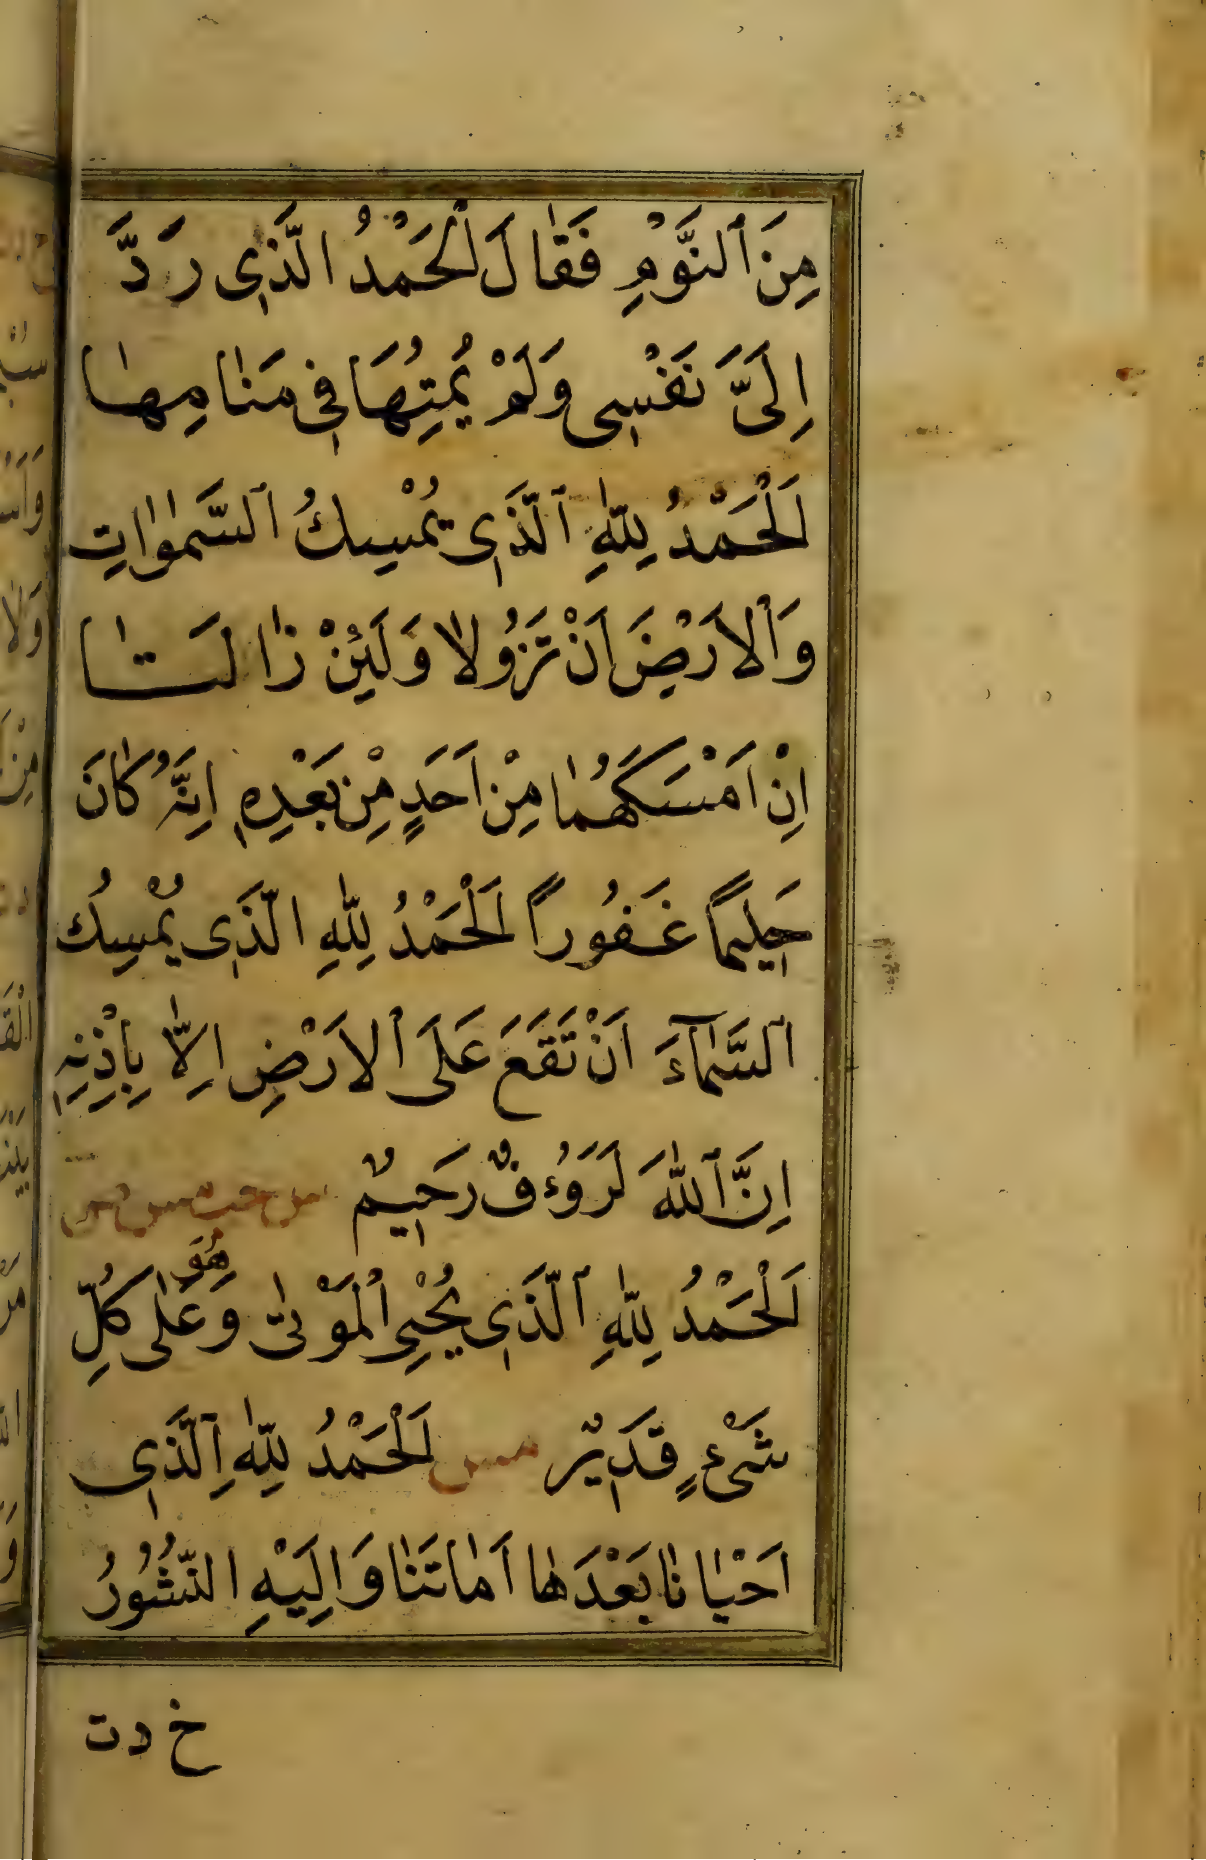 مِنَ ٱلنَّوْمِ فَقَالَ لْحَمْدُ الَّذِى رَدَّ
اِلَىَّ نَفْسِى وَلَمْ يُمِتْهَا فِى مَنَامِهَا
اَلْحَمْدُ لِلّٰهِ ٱلَّذِى يُمْسِكُ ٱلسَّمٰوَاتِ
وَٱلْاَرْضَ اَنْ تَزُولَا وَلَئِنْ زَالَتَا
اِنْ اَمْسَكَهُمَا مِنْ اَحَدٍ مِنْ بَعْدِهِ اِنَّهُ كَانَ
حَلِيمًا غَفُورًا اَلْحَمْدُ لِلّٰهِ الَّذِى يُمْسِكُ
ٱلسَّمَآءَ اَنْ تَقَعَ عَلَى ٱلْاَرْضِ اِلَّا بِاِذْنِهِ
اِنَّ ٱللّٰهَ لَرَؤُفٌ رَحِيمٌ
هُوَ
اَلْحَمْدُ لِلّٰهِ ٱلَّذِى يُحْيِى ٱلْمَوْتٰى وَعَلٰى كُلِّ
شَىْءٍ قَدِيرٌ مس اَلْحَمْدُ لِلّٰهِ ٱلَّذِى
اَحْيَانَا بَعْدَهَا اَمَاتَنَا وَاِلَيْهِ النُّشُورُ
خ د ت